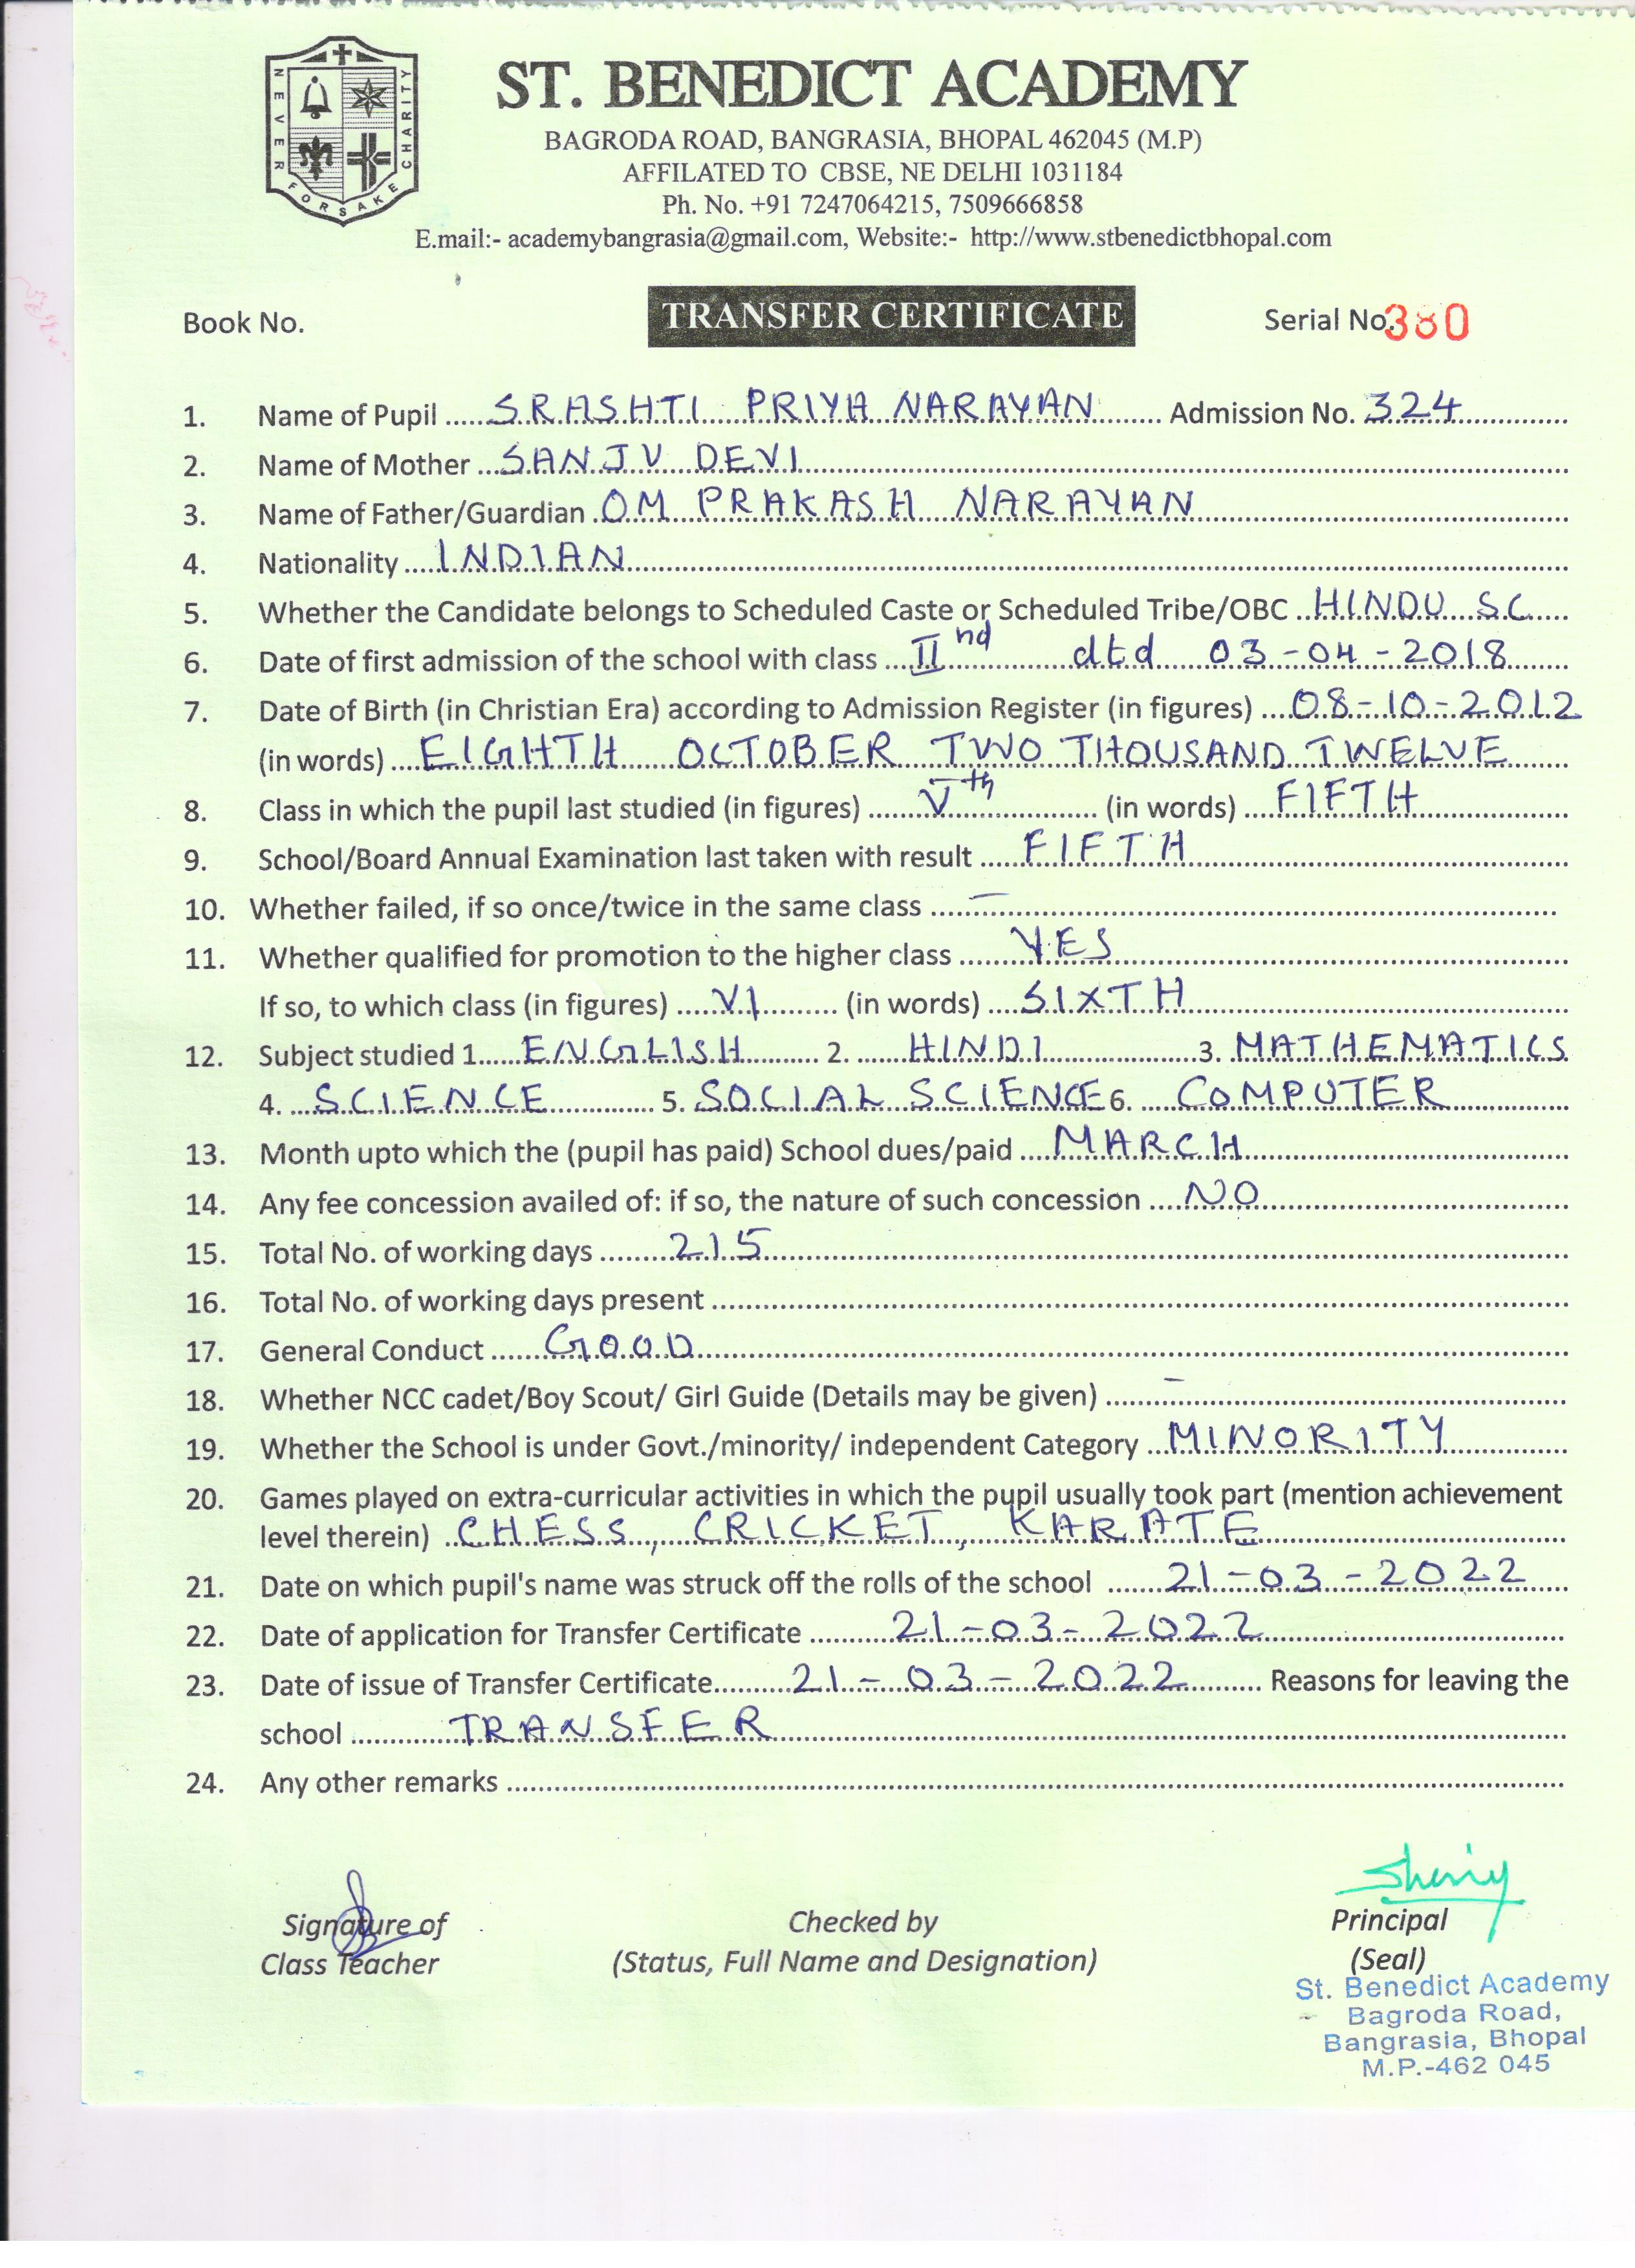 NEVER FORSAKE CHARITY
ST. BENEDICT ACADEMY
BAGRODA ROAD, BANGRASIA, BHOPAL 462045 (M.P)
AFFILATED TO CBSE, NE DELHI 1031184
Ph. No. +91 7247064215, 7509666858
E.mail:- academybangrasia@gmail.com, Website:- http://www.stbenedictbhopal.com
Book No. TRANSFER CERTIFICATE Serial No. 380
1. Name of Pupil SRASHTI PRIYA NARAYAN Admission No. 324
2. Name of Mother SANJU DEVI
3. Name of Father/Guardian OM PRAKASH NARAYAN
4. Nationality INDIAN
5. Whether the Candidate belongs to Scheduled Caste or Scheduled Tribe/OBC HINDU SC
6. Date of first admission of the school with class IInd dtd 03-04-2018
7. Date of Birth (in Christian Era) according to Admission Register (in figures) 08-10-2012
(in words) EIGHTH OCTOBER TWO THOUSAND TWELVE
8. Class in which the pupil last studied (in figures) Vth (in words) FIFTH
9. School/Board Annual Examination last taken with result FIFTH
10. Whether failed, if so once/twice in the same class –
11. Whether qualified for promotion to the higher class YES
If so, to which class (in figures) VI (in words) SIXTH
12. Subject studied 1. ENGLISH 2. HINDI 3. MATHEMATICS
4. SCIENCE 5. SOCIAL SCIENCE 6. COMPUTER
13. Month upto which the (pupil has paid) School dues/paid MARCH
14. Any fee concession availed of: if so, the nature of such concession NO
15. Total No. of working days 215
16. Total No. of working days present
17. General Conduct GOOD
18. Whether NCC cadet/Boy Scout/ Girl Guide (Details may be given) –
19. Whether the School is under Govt./minority/ independent Category MINORITY
20. Games played on extra-curricular activities in which the pupil usually took part (mention achievement
level therein) CHESS, CRICKET, KARATE
21. Date on which pupil's name was struck off the rolls of the school 21-03-2022
22. Date of application for Transfer Certificate 21-03-2022
23. Date of issue of Transfer Certificate 21-03-2022 Reasons for leaving the
school TRANSFER
24. Any other remarks
Signature of Checked by Principal
Class Teacher (Status, Full Name and Designation) (Seal)
St. Benedict Academy
Bagroda Road,
Bangrasia, Bhopal
M.P.-462 045